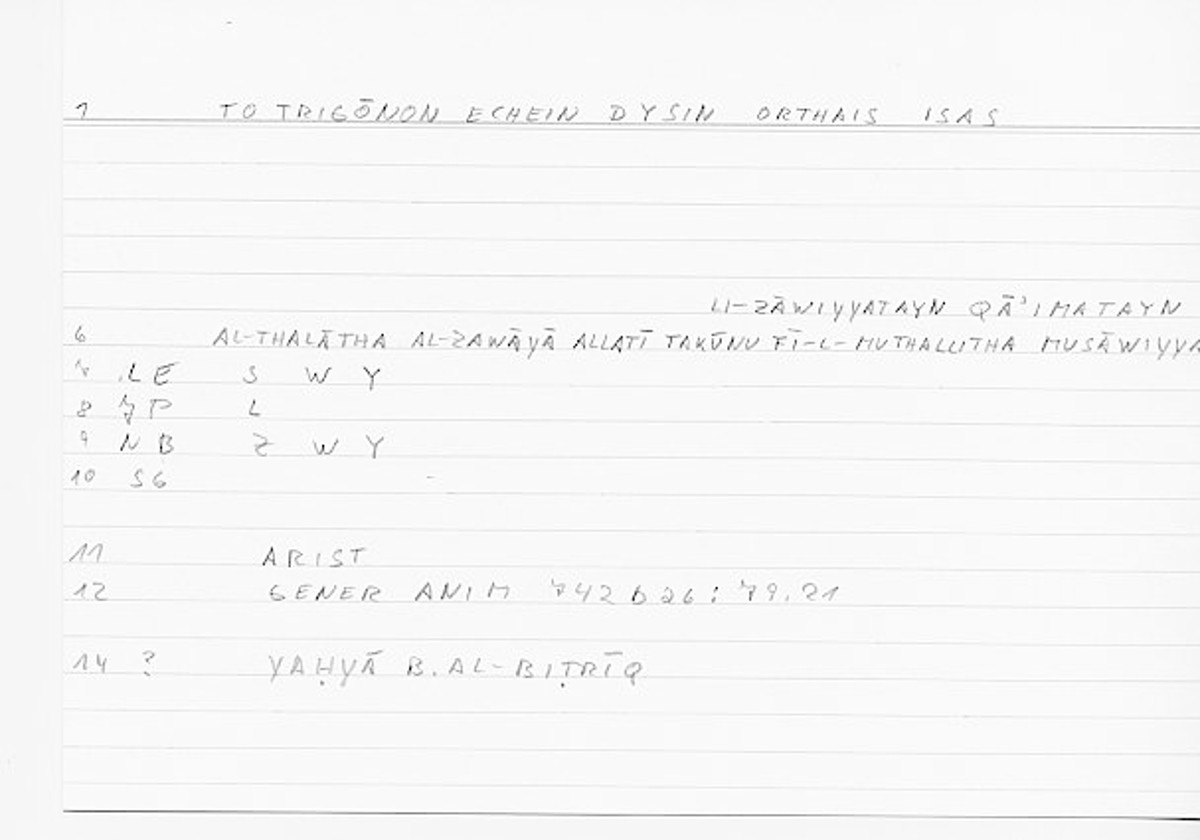 1 TO TRIGŌNON ECHEIN DYSIN ORTHAIS ISAS
LI-ZĀWIYYATAYN QĀʾIMATAYN
6 AL-THALĀTHA AL-ZAWĀYĀ ALLATĪ TAKŪNU FĪ-L-MUTHALLITHA MUSĀWIYYA
7 .LE S W Y
8 7P L
9 NB Z W Y
10 SG
11 ARIST
12 GENER ANIM 742 b 26 : 79.21
14 ? YAḤYĀ B. AL-BIṬRĪQ